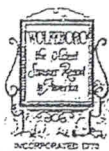 WOLFEBORO
the Oldest
Summer Resort
in America
INCORPORATED 1770